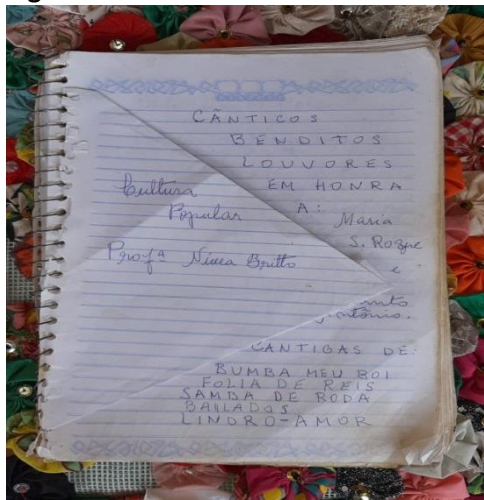 CÂNTICOS
BENDITOS
LOUVORES
EM HONRA
A:
Maria
S. Roque
e
Antônio.
Cultura
Popular
Profª Britto
CANTIGAS DE:
BUMBA MEU BOI
FOLIA DE REIS
SAMBA DE RODA
BAILADOS
LINDRO-AMOR